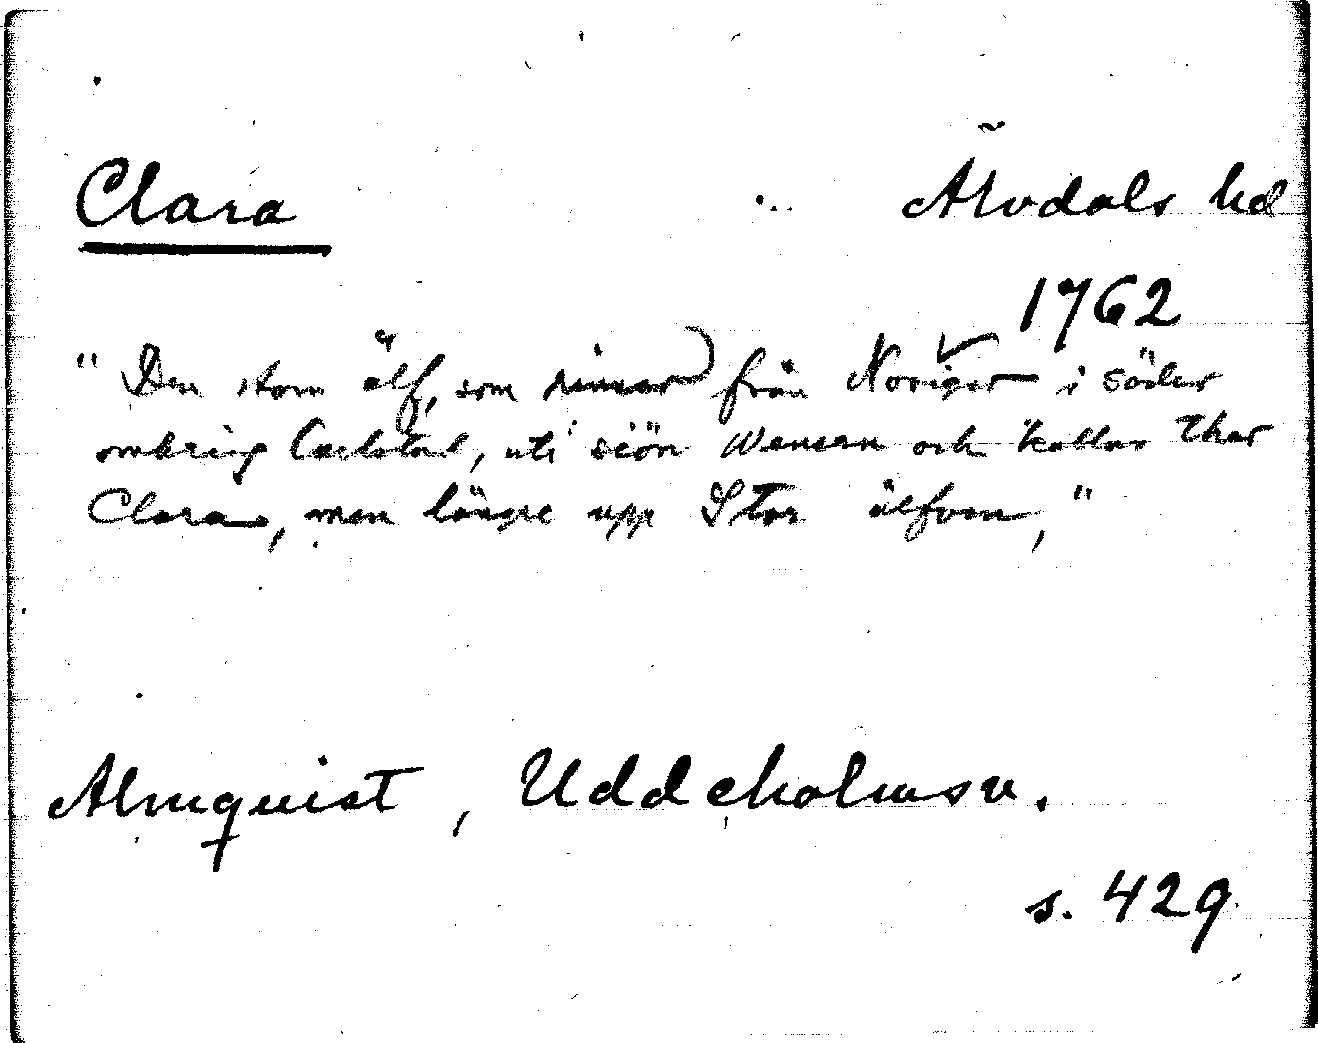 Clara
Älvdals hd
1762
"Den stora älf, som rinner från Noriger i söder
omkring Carlstad, uti siön Wenern och kallas thar
Clara, men längre upp Stor älfven,"
Almquist, Uddeholmsv.
s. 429